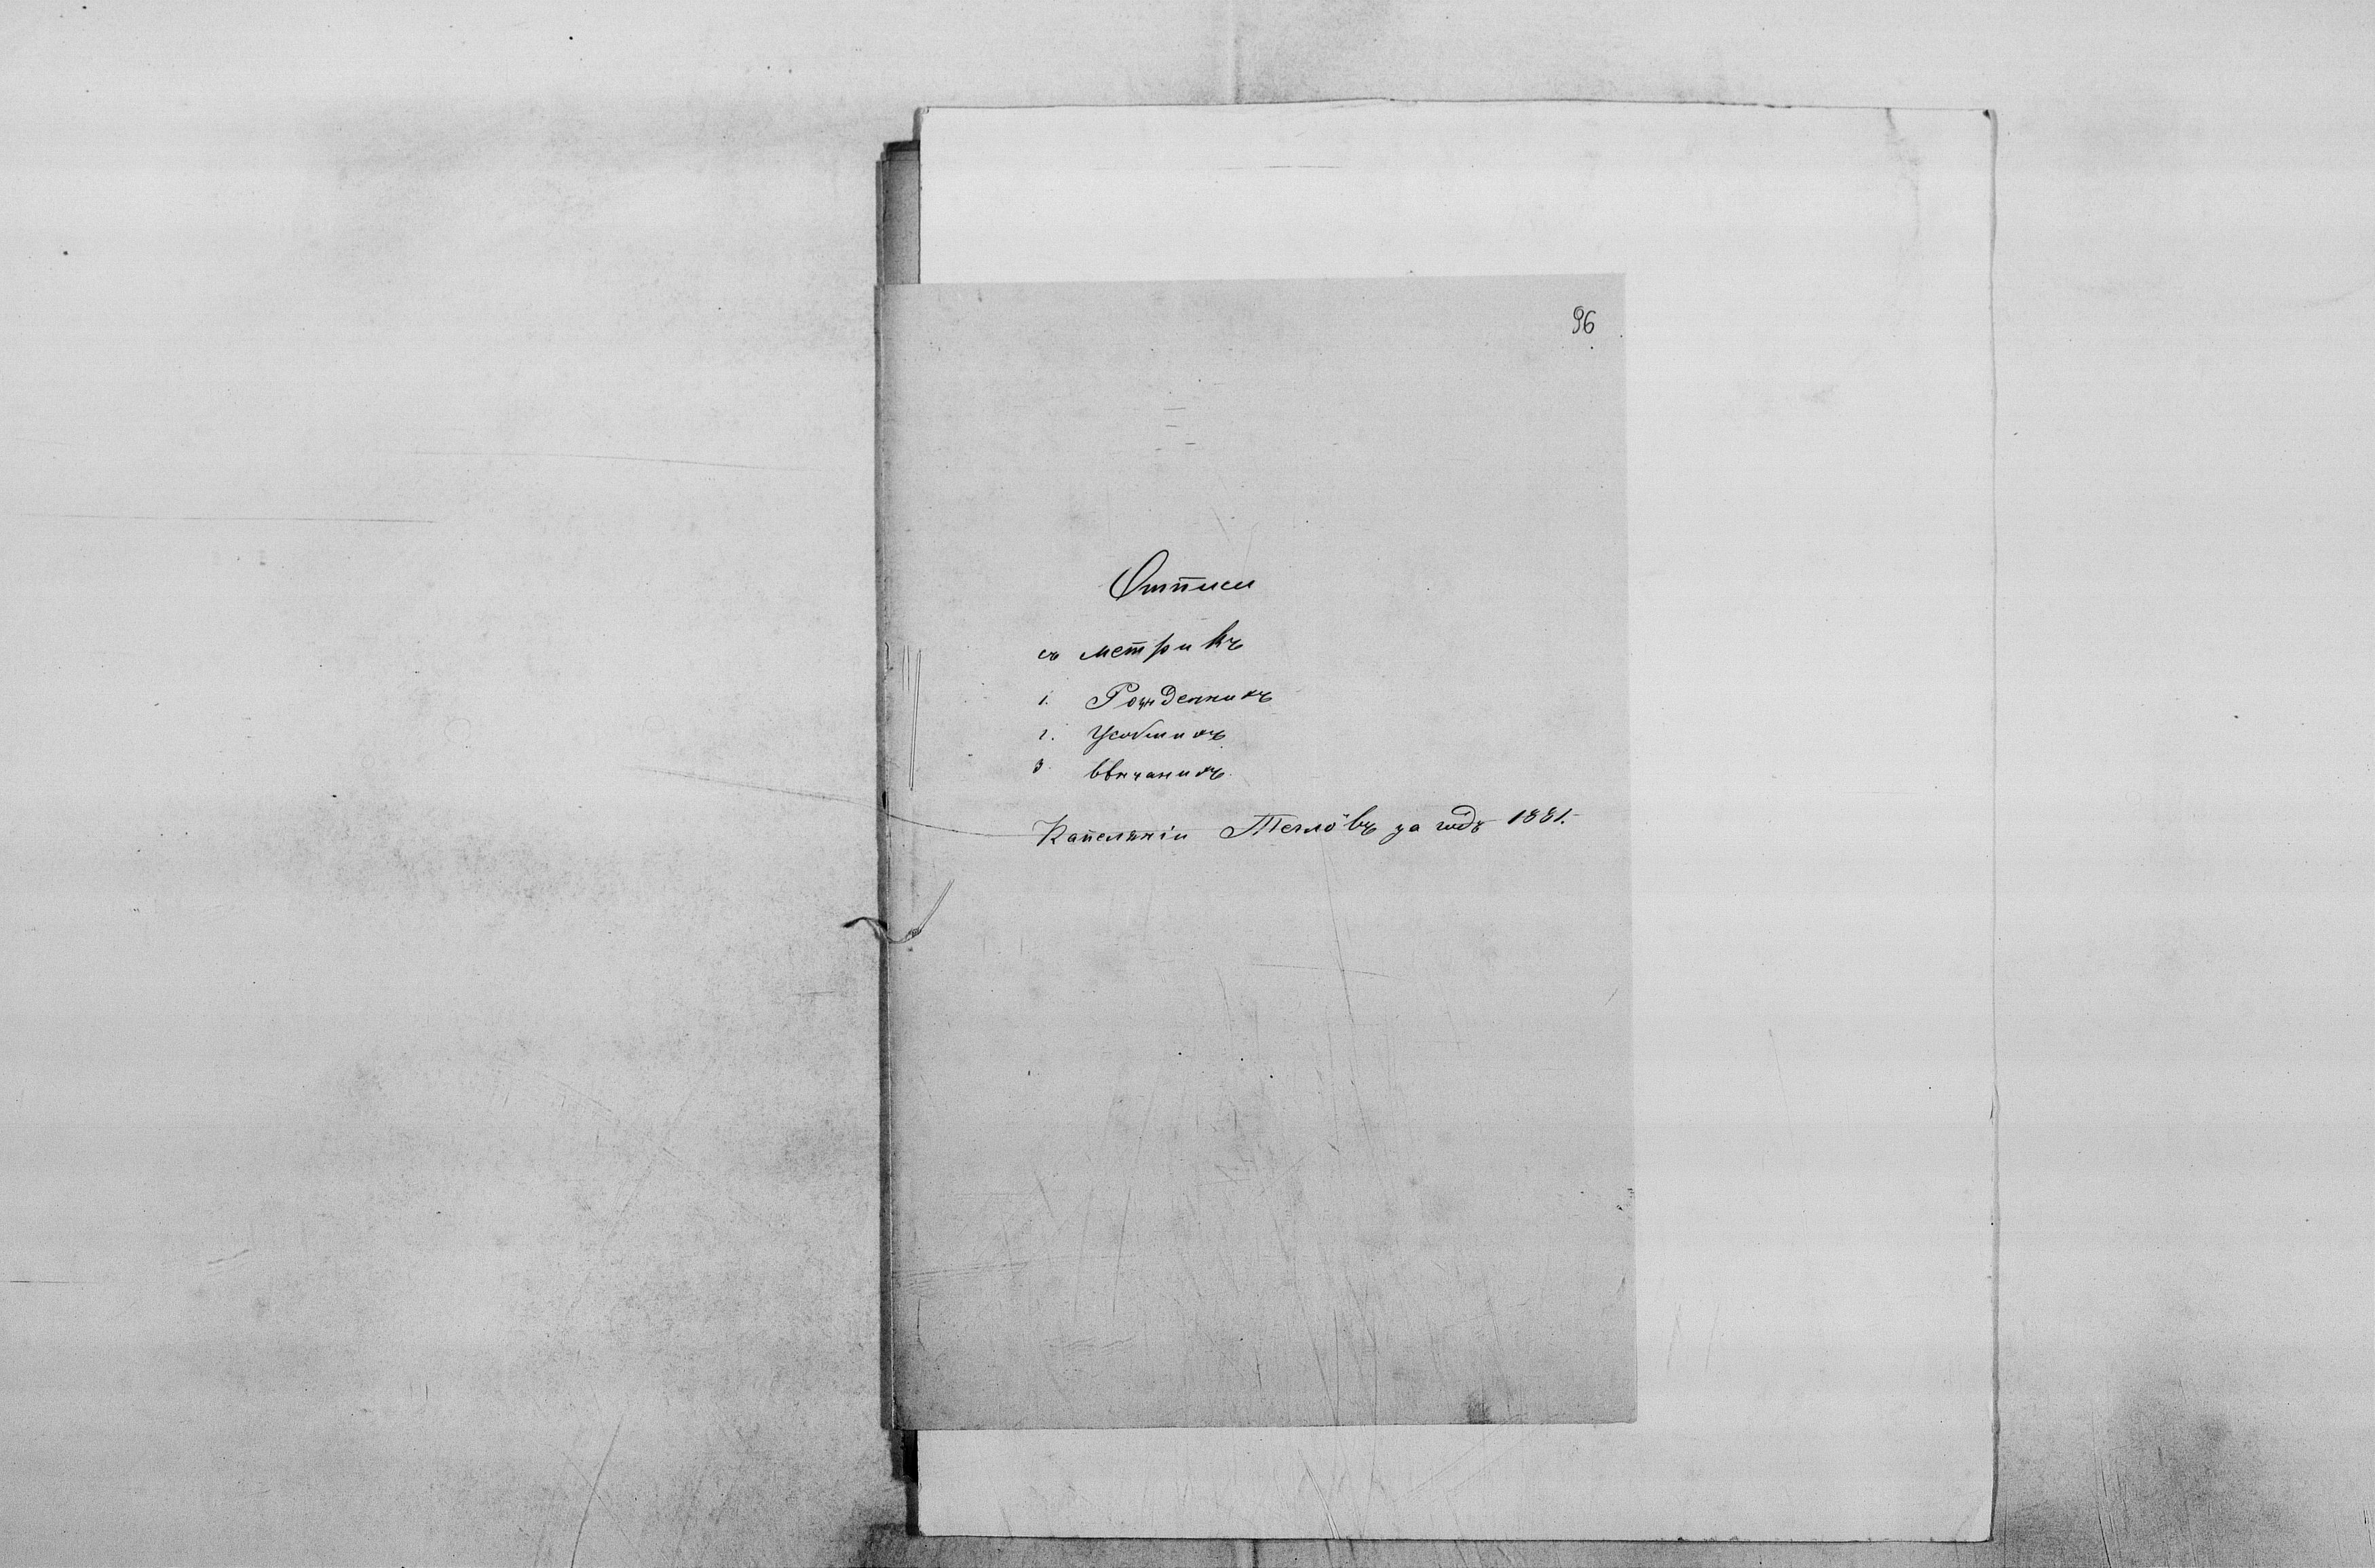 96
Отписи
съ метрикъ
1. Рожденныхъ
2. Усобшихъ
3 ввнчаныхъ
Капеляніи Теглôвъ за годъ 1881.